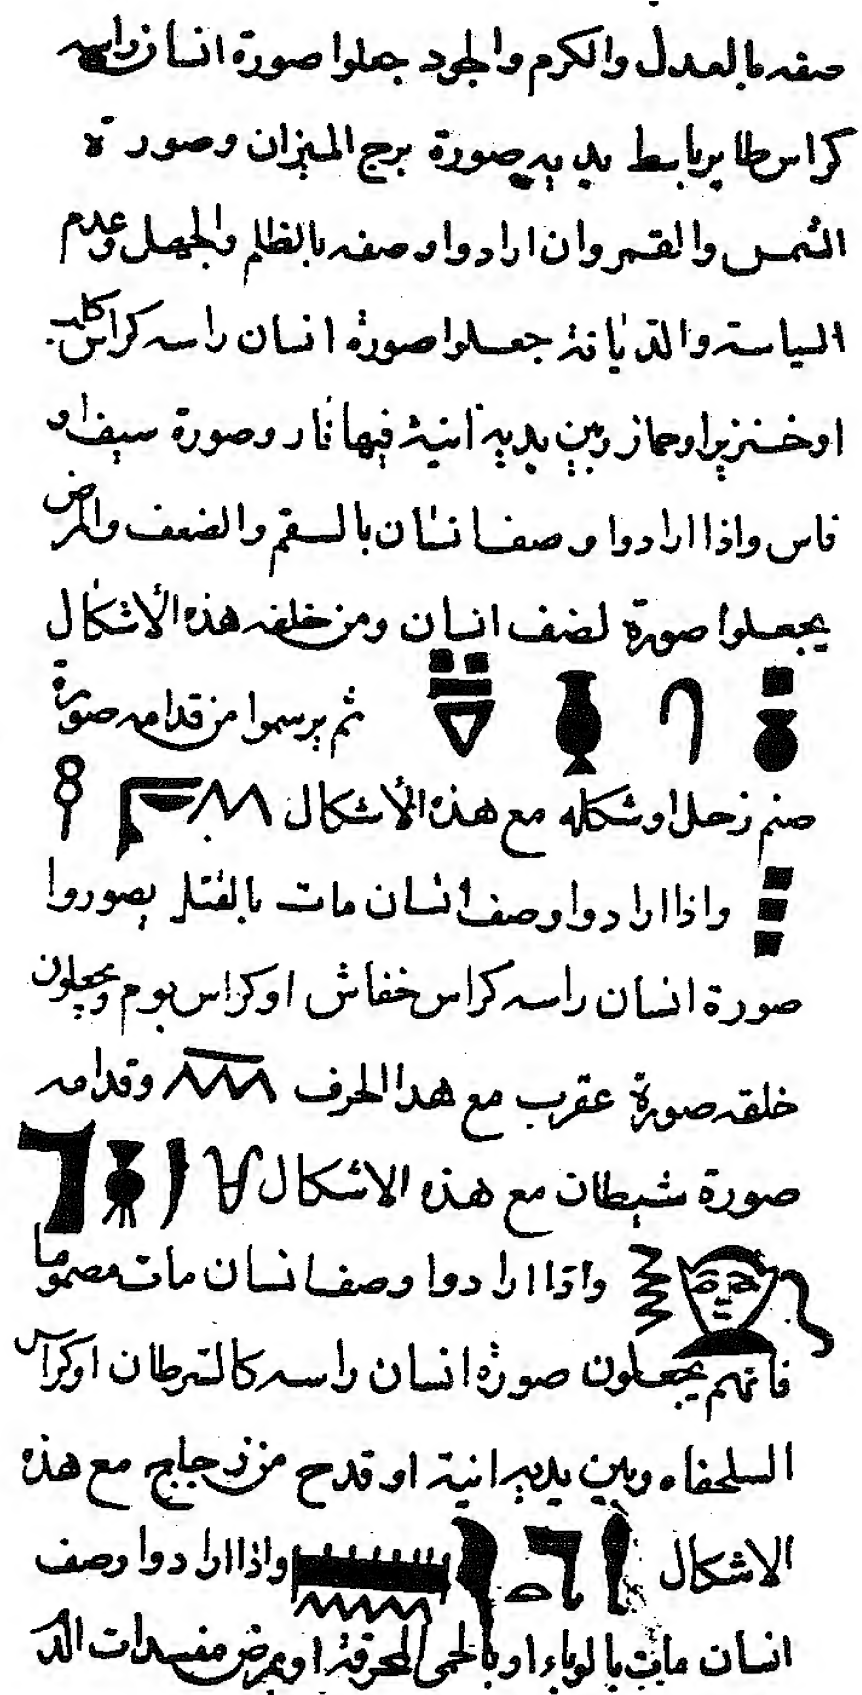 صفه بالعدل والكرم والجود جعلوا صورة انسان راسه
كراس طاير باسط يديه صورة برج الميزان وصورة
الشمس والقمر وان ارادوا وصفه بالظلم والجهل وعدم
السياسة والديانة جعلوا صورة انسان راسه كراس كلب
او خنزير او حمار وبين يديه انية فيها نار وصورة سيف او
فاس واذا ارادوا وصف انسان بالسقم والضعف والمرض
يجعلوا صورة نصف انسان ومن خلفه هذه الأشكال
ثم يرسموا من قدامه صورة
صنم زحل او شكله مع هذه الأشكال
واذا ارادوا وصف انسان مات بالقتل يصوروا
صورة انسان راسه كراس خفاش او كراس بوم ويجعلون
خلفه صورة عقرب مع هذا الحرف وقدامه
صورة شيطان مع هذه الاشكال
واذا ارادوا وصف انسان مات مصموما
فانهم يجعلون صورة انسان راسه كالسرطان او كراس
السلحفاه وبين يديه انية او قدح من زجاج مع هذه
الاشكال واذا ارادوا وصف
انسان مات بالوباء او بالحمى المحرقة او بمرض مفسدات الد